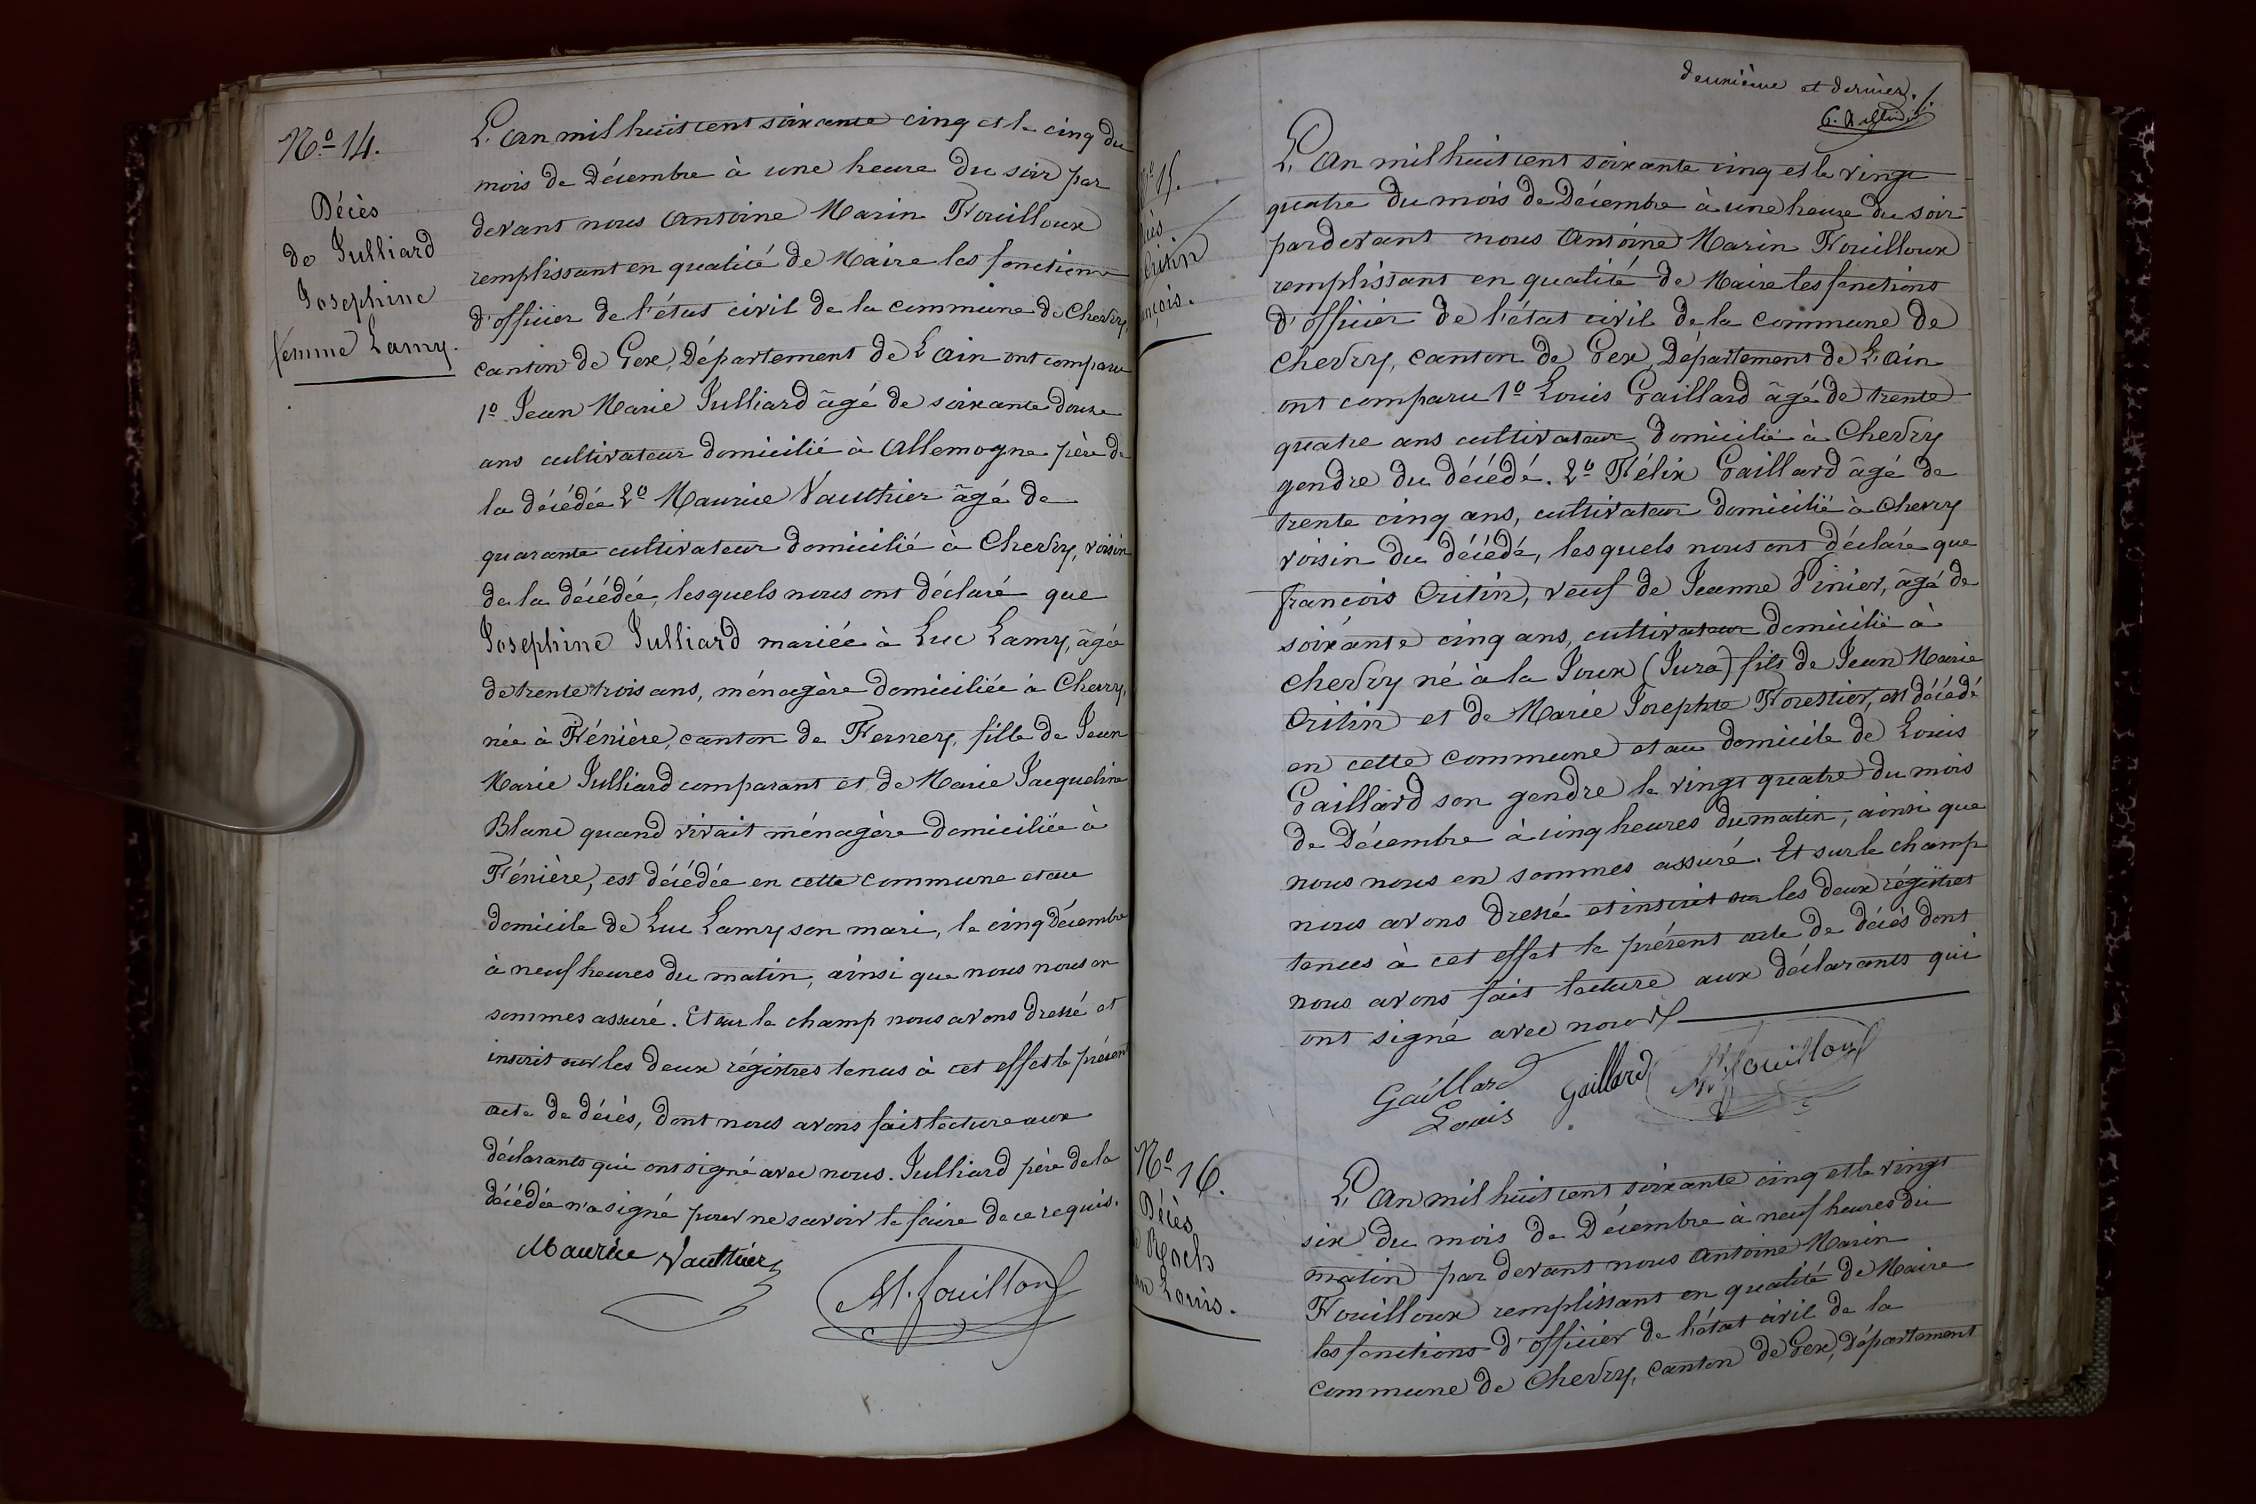 No 14.
Décès
de Julliard
Josephine
femme Lamy.
L'an mil huit cent soixante cinq et le cinq du
mois de Décembre à une heure du soir par
devant nous Antoine Marin Fouilloux
remplissant en qualité de Maire les fonctions
d'officier de l'état civil de la commune de Chevry,
canton de Gex, Département de L'Ain ont comparu
1o Jean Marie Julliard âgé de soixante douze
ans cultivateur domicilié à Allemogne père de
la décédée 2o Maurice Vauthier âgé de
quarante cultivateur domicilié à Chevry, voisin
de la décédée, lesquels nous ont déclaré que
Josephine Julliard mariée à Luc Lamy, âgée
de trente trois ans, ménagère domiciliée à Chevry,
née à Fénière, canton de Ferney, fille de Jean
Marie Julliard comparant et de Marie Jacqueline
Blanc quand vivait ménagère domiciliée à
Fénière, est décédée en cette commune et au
domicile de Luc Lamy son mari, le cinq Décembre
à neuf heures du matin, ainsi que nous nous en
sommes assuré. Et sur le champ nous avons dressé et
inscrit sur les deux régistres tenus à cet effet le présent
acte de décès, dont nous avons fait lecture aux
déclarants qui ont signé avec nous. Julliard père de la
décédée n'a signé pour ne savoir le faire de ce requis.
Maurice Vauthier
AM. fouilloux
deuxième et dernier.
No 15.
Critin
L'An mil huit cent soixante cinq et le vingt
quatre du mois de Décembre à une heure du soir
pardevant nous Antoine Marin Fouilloux
remplissant en qualité de Maire les fonctions
d'officier de l'état civil de la commune de
Chevry, canton de Gex, Département de L'Ain
ont comparu 1o Louis Gaillard âgé de trente
quatre ans cultivateur domicilié à Chevry
gendre du décédé. 2o Félix Gaillard âgé de
trente cinq ans, cultivateur domicilié à Chevry
voisin du décédé, lesquels nous ont déclaré que
françois Critin, veuf de Jeanne Pinier, âgé de
soixante cinq ans, cultivateur domicilié à
Chevry né à la Joux (Jura) fils de Jean Marie
Critin et de Marie Josephte Forestier, est décédé
en cette commune et au domicile de Louis
Gaillard son gendre le vingt quatre du mois
de Décembre à cinq heures du matin, ainsi que
nous nous en sommes assuré. Et sur le champ
nous avons dressé et inscrit sur les deux régistres
tenus à cet effet le présent acte de décès dont
nous avons fait lecture aux déclarants qui
ont signé avec nous
Gaillard
Louis
Gaillard
AM. fouilloux
No 16.
Décès
Roch
Louis.
L'An mil huit cent soixante cinq et le vingt
six du mois de Décembre à neuf heures du
matin par devant nous Antoine Marin
Fouilloux remplissant en qualité de Maire
les fonctions d'officier de l'état civil de la
commune de Chevry, canton de Gex, Département